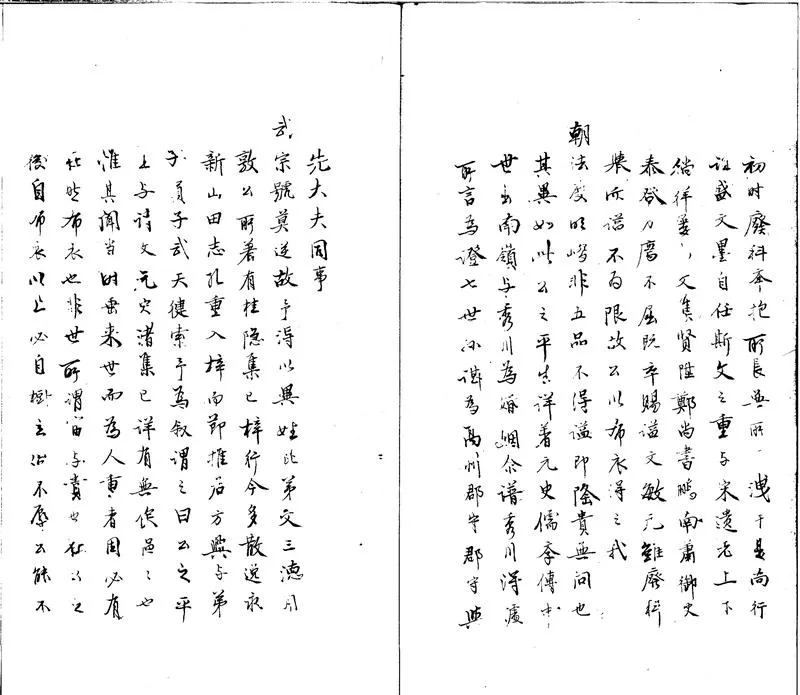 初時廢科舉抱所長無所洩于是尚行
誼盛文墨自任斯文之重与宋遺老上下
倘徉筭文集賢陞鄭尚書鵬南蕭御史
泰登力薦不屈既卒賜謚文敏元雖廢科
裳所謚不為限故公以布衣得之我
朝法度明嶝非五品不得謚即隆貴無問也
其異如此公之平生詳著元史儒學傳中
世出南嶺与秀川為婚姻余譜秀川得盧
所言為證七世孫讚為高州郡守郡守與
先大夫同事
武宗號莫逆故予得以異姓比第交三德月
敦公所著有桂隐集已梓行今多散逸最
新山田志孔重入梓而節推君方興与弟
子員子武天健索予為叙謂之曰公之平
生与詩文元史諸集已详有無俟區々也
惟其聞当時垂来世而為人重者固必有
在然布衣也非世所謂富与貴也
後自布衣以上必自樹立始不辱公能不